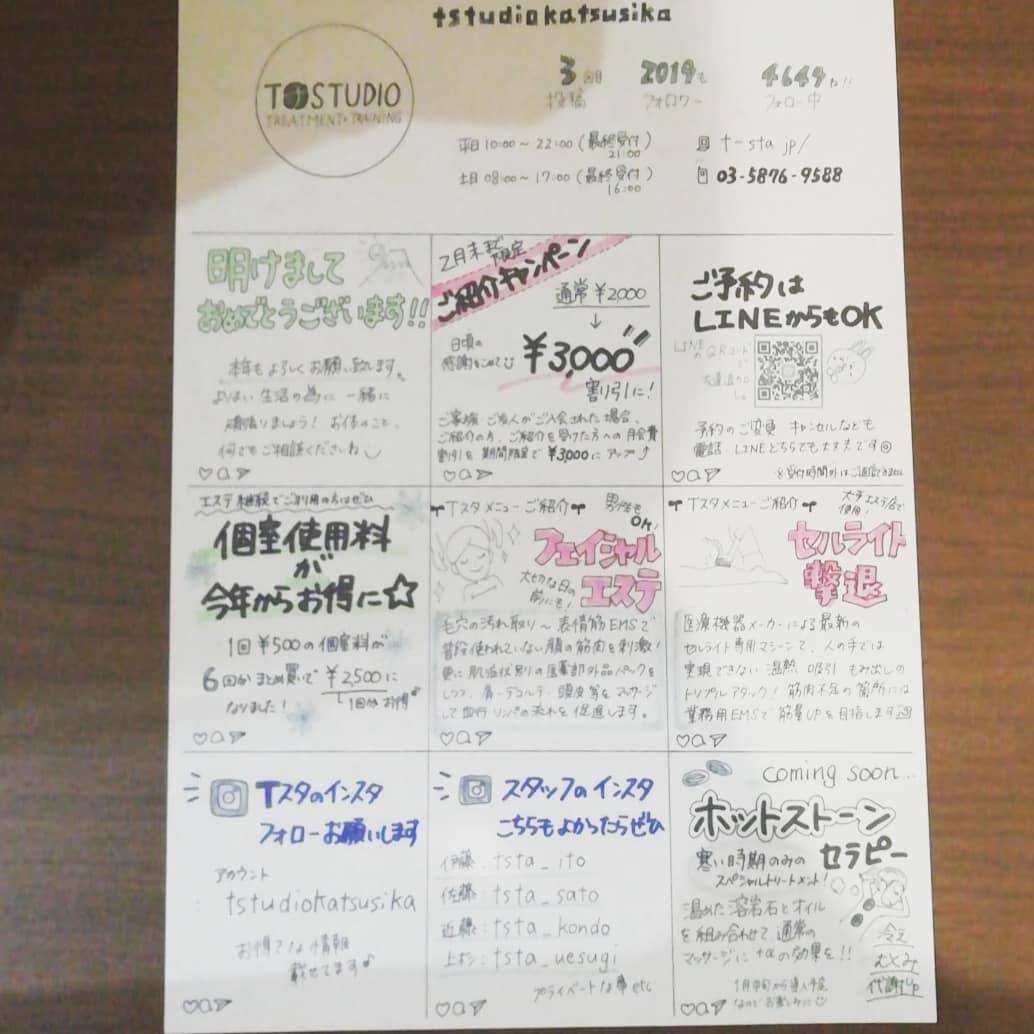 tstudiokatsusika
T STUDIO
TREATMENT & TRAINING
3回 2019も 4649な!!
投稿 フォロワー フォロー中
平日 10:00～22:00 (最終受付 21:00)
土日 08:00～17:00 (最終受付 16:00)
t-sta.jp/
03-5876-9588
明けまして
おめでとうございます!!
本年もよろしくお願い致します。
よりよい生活の為に一緒に
頑張りましょう! お体のこと、
何でもご相談くださいね
2月末まで限定
ご紹介キャンペーン
通常¥2,000
↓
日頃の
感謝をこめて
¥3,000
割引に!
ご家族 ご友人がご入会された場合、
ご紹介の方、ご紹介を受けた方への月会費
割引を期間限定で¥3,000にアップ⤴
ご予約は
LINEからもOK
LINEの
QRコード
予約のご変更 キャンセルなども
電話 LINEどちらでも大丈夫です
※受付時間外はご返信できません
エステ 継続でご利用の方はぜひ
個室使用料
が
今年からお得に☆
1回¥500の個室料が
6回分まとめ買いで¥2,500に
なりました!
1回分お得♪
Tスタメニューご紹介
男性も
OK!
フェイシャル
エステ
大切な日の
前にも!
毛穴の汚れ取り～表情筋EMSで
普段使われていない顔の筋肉を刺激!
更に肌症状別の医薬部外品パックを
しつつ、肩～デコルテ、頭皮等をマッサージ
して血行 リンパの流れを促進します。
Tスタメニューご紹介
大手エステ店で
使用!
セルライト
撃退
医療機器メーカーによる最新の
セルライト専用マシーンで、人の手では
実現できない温熱 吸引 もみ出しの
トリプルアタック! 筋肉不足の箇所には
業務用EMSで筋量UPを目指します
Tスタのインスタ
フォローお願いします
アカウント
tstudiokatsusika
お得な情報
載せてます♪
スタッフのインスタ
こちらもよかったらぜひ
伊藤:tsta_ito
佐藤:tsta_sato
近藤:tsta_kondo
上杉:tsta_uesugi
プライベートな事etc
coming soon...
ホットストーン
セラピー
寒い時期のみの
スペシャルトリートメント!
温めた溶岩石とオイル
を組み合わせて通常の
マッサージに+αの効果を!!
冷え
むくみ
代謝Up
1月中旬から導入予定
なのでお楽しみに